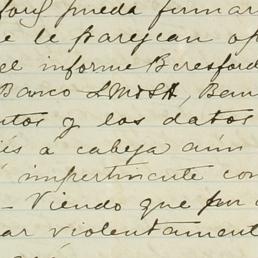 ford pueda firmar
e le parezcan op
el informe Beresford
Banco LMSA, Ban
ntos y los datos
és a cabeza aún
impertinente con
- Viendo que por
ar violentamente